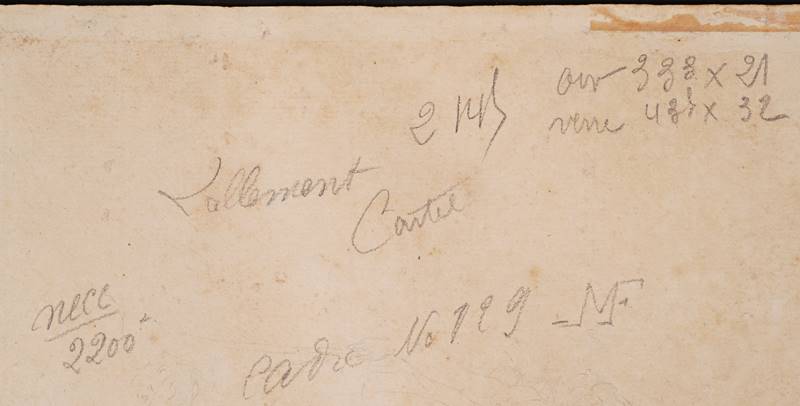 ouv 33 3 x 21
verre 43 x 32
Lallement
Cartel
necc
2200
Cadre No 129 - M